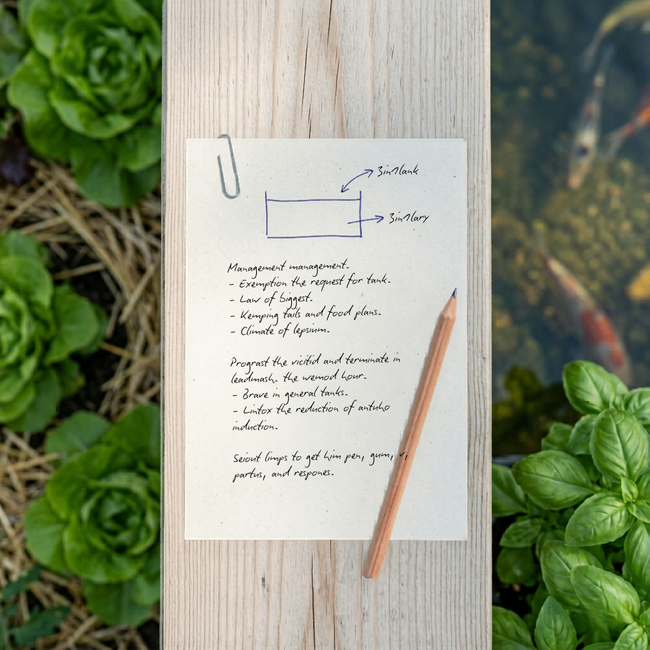 Management management.
- Exemption the request for tank.
- Law of biggest.
- Kemping tails and food plans.
- Climate of lepsium.
Prograst the vicitid and terminate in
leadmash. the wemod hour.
- Brave in general tanks.
- Lintox the reduction of antuho
induction.
Seiout limps to get him pen, gum,
partus, and respones.